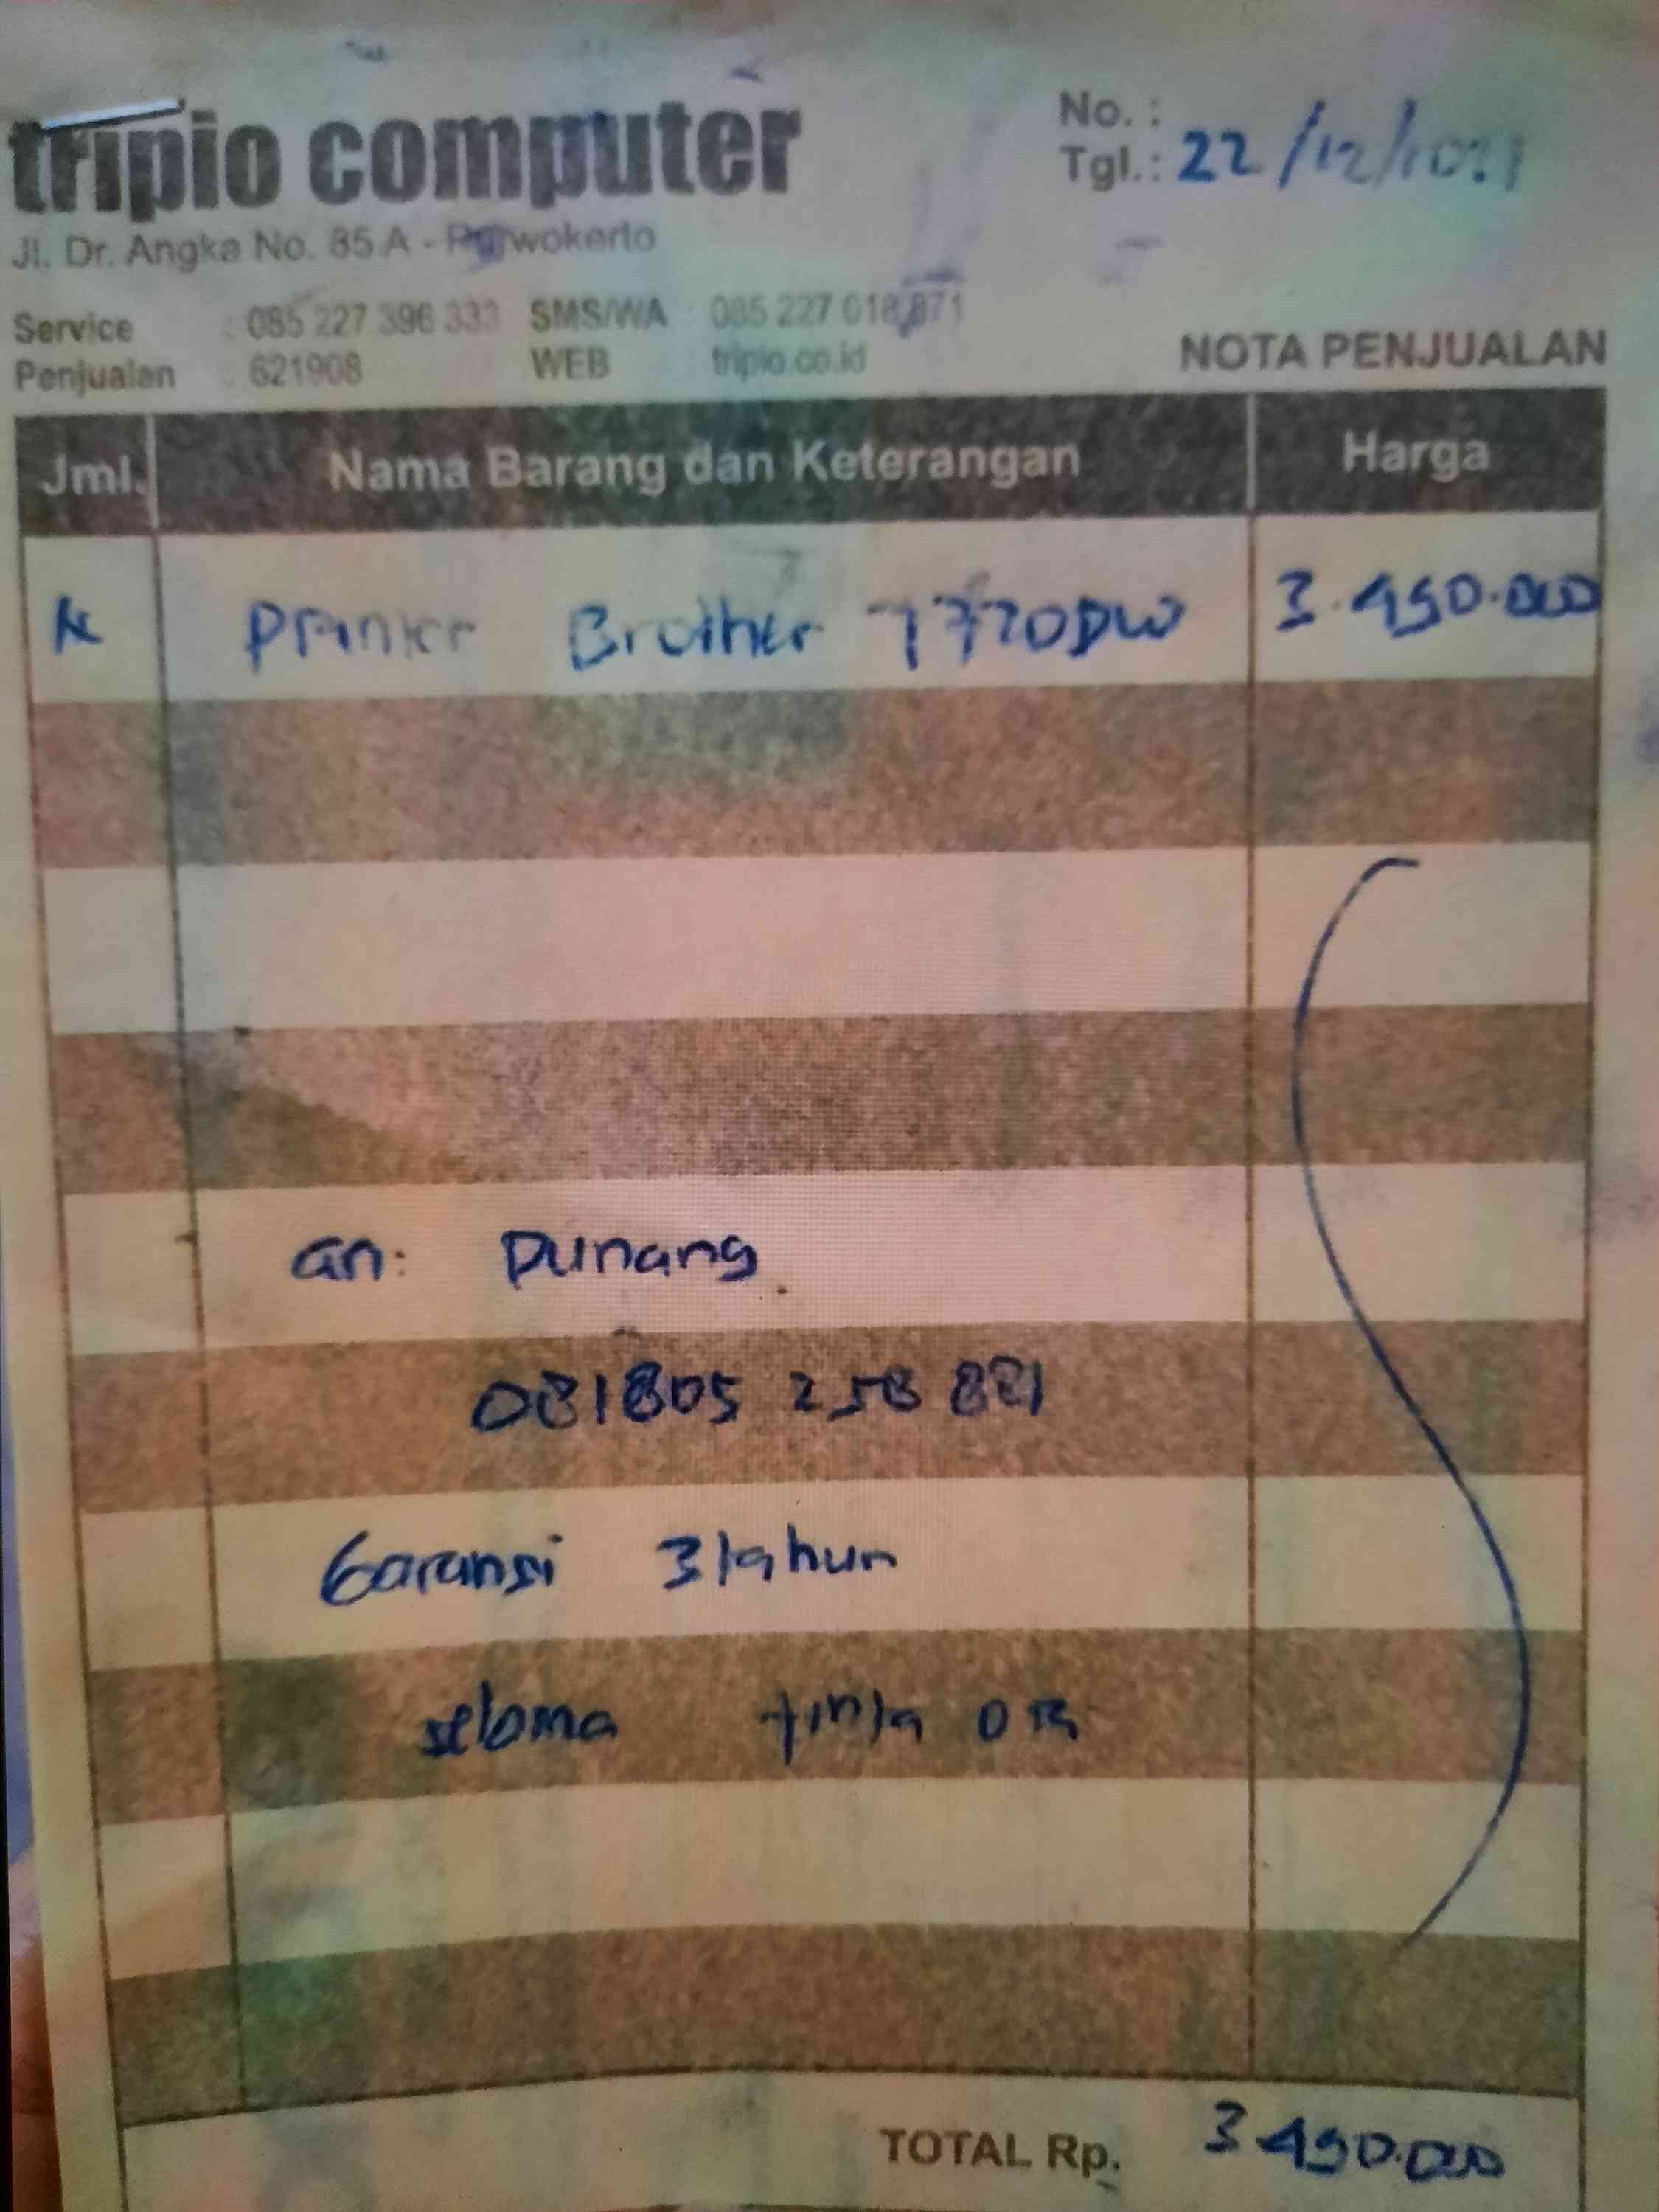 tripio computer
No. :
Tgl. : 22/12/2021
Jl. Dr. Angka No. 85 A - Purwokerto
Service : 085 227 396 333 SMS/WA : 085 227 018 871
Penjualan : 621908 WEB : tripio.co.id
NOTA PENJUALAN
Jml. Nama Barang dan Keterangan Harga
Printer Brother 7720DW 3.490.000
an: Dunang
081805 258 881
Garansi 3 tahun
selama tinta ORI
TOTAL Rp. 3.490.000